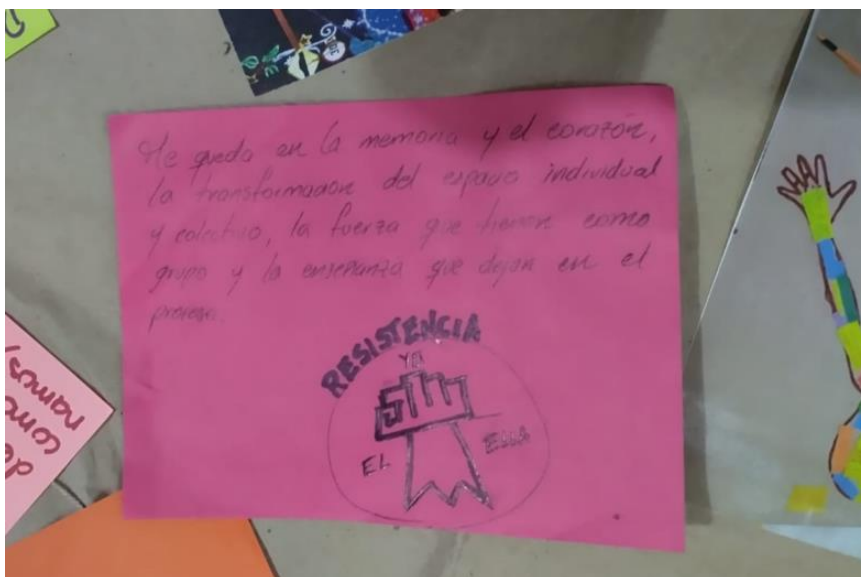 Me quedo en la memoria y el corazón,
la transformacion del espacio individual
y colectivo, la fuerza que tienen como
grupo y la enseñanza que dejan en el
proceso.
RESISTENCIA
YO
EL
ELLA